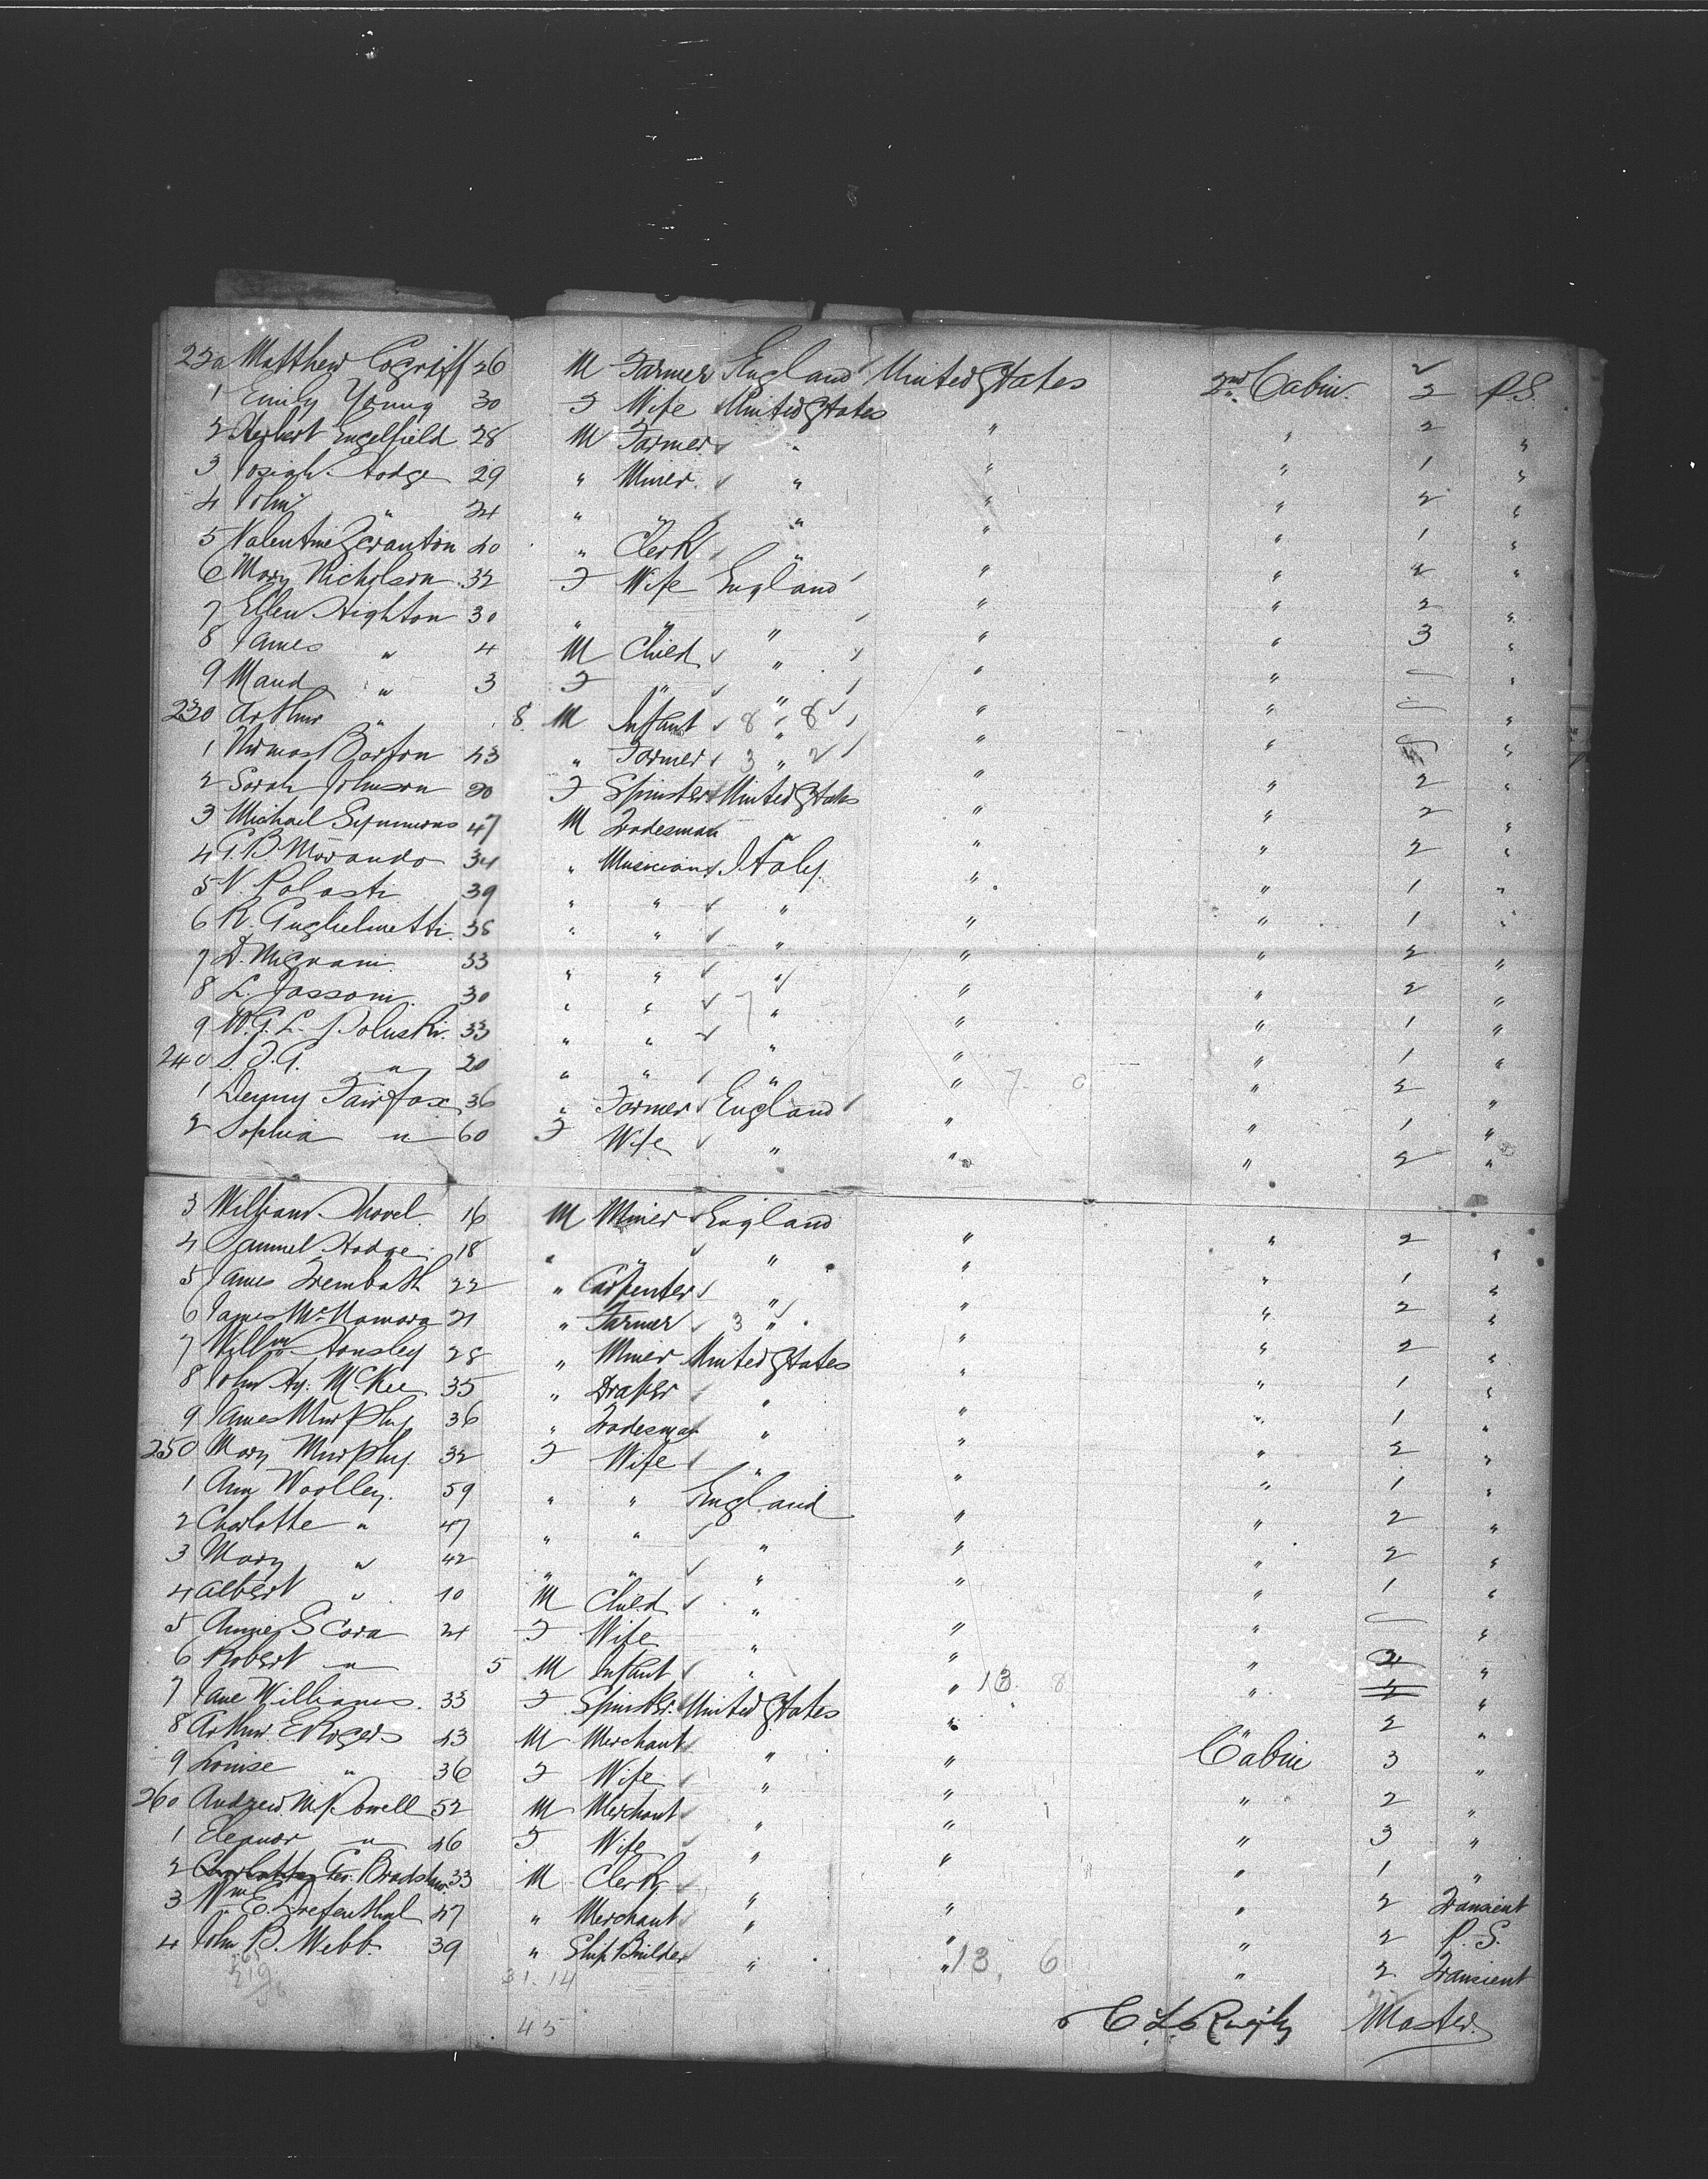 220 Matthew Cogriff 26 M Farmer England United States 2nd Cabin. 2 P.S.
1 Emily Young 30 F Wife United States " " 2 "
2 Herbert Engelfield 28 M Farmer " " " 1 "
3 Josiah Hodge 29 " Miner " " " 2 "
4 John " 24 " " " " " 1 "
5 Valentine Scranton 40 " Clerk " " " 2 "
6 Mary Nicholson 32 F Wife England " " 2 "
7 Ellen Highton 30 " " " " " 3 "
8 James " 4 M Child " " " "
9 Maud " 3 F " " " " "
230 Arthur " 8 M Infant 8 " 8 " " "
1 Barton 43 " Farmer 3 " 2 " " 2 "
2 Sarah Johnson 20 F Spinster United States " " 2 "
3 Michael Symmons 47 M Tradesman " " " 2 "
4 G.B. Morando 34 " Musician Italy " " 1 "
5 V. Polasti 39 " " " " " 1 "
6 R. Guglielmetti 35 " " " " " 2 "
7 D. Migrani 33 " " " " " 2 "
8 L. Jassoni 30 " " 7 " " " 1 "
9 W.G.L. Poluski 33 " " " " " 1 "
240 S.J.G. " 20 " " " " 7 0 " 2 "
1 Denny Fairfax 36 " Farmer England " " 1 "
2 Sophia " 60 F Wife " " " 2 "
3 William Shovel 16 M Miner England " " 2 "
4 Samuel Hodge 18 " " " " " 1 "
5 James Trembath 22 " Carpenter " " " 2 "
6 James McNamara 21 " Farmer 3 " " " 2 "
7 Willm Housley 28 " Miner United States " " 1 "
8 John Hy. McKee 35 " Draper " " " 1 "
9 James Murphy 36 " Tradesman " " " 2 "
250 Mary Murphy 32 F Wife " " " 1 "
1 Ann Woolley 59 " " England " " 2 "
2 Charlotte " 47 " " " " " 2 "
3 Mary " 42 " " " " " 1 "
4 Albert " 10 M Child " " " "
5 Annie Scora 24 F Wife " " " 2 "
6 Robert " 5 M Infant " " 13 8 " "
7 Jane Williams 33 F Spinster United States " " 2 "
8 Arthur E. Rogers 43 M Merchant " " Cabin 3 "
9 Louise " 36 F Wife " " " 2 "
260 Andrew M. Powell 52 M Merchant " " " 3 "
1 Eleanor " 46 F Wife " " " 1 "
2 Charlotte Geo. Bradshaw 33 M Clerk " " " 2 Transient
3 Wm. E. Drefenthal 47 " Merchant " " " 2 P.S.
4 John B. Webb 39 " Ship Builder " " 13. 6 " 2 Transient
31.14
45
Master